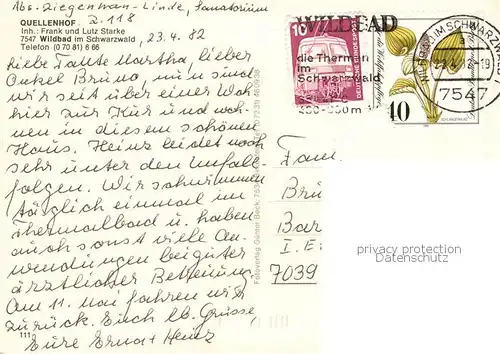 Abs. Ziegenman - Linde, Sanatorium
QUELLENHOF, D. 118
Inh.: Frank und Lutz Starke
7547 Wildbad im Schwarzwald
Telefon (0 70 81) 6 66
23.4.82
Liebe Tante Martha, lieber
Onkel Bruno, nun sind
wir seit über einer Wo-
hier zur Kur und woh-
nen in diesem schönen
Haus. Heinz leidet noch
sehr unter den Unfall-
folgen. Wir schwimmen
täglich einmal im
Thermalbad u. haben
auch sonst viele An-
wendungen bei guter
ärztlicher Betreuung.
Am 11. Mai fahren wir
zurück. Euch lb. Grüsse,
Eure Erna + Heinz
111
Fotoverlag Günter Beck, 7534
10
DEUTSCHE BUNDESPOST
WILDBAD
die Thermen
im
Schwarzwald
m
40
IM SCHWARZ
-19
7547
Fam.
Brü
Bar
I. E
7039
privacy protection
Datenschutz